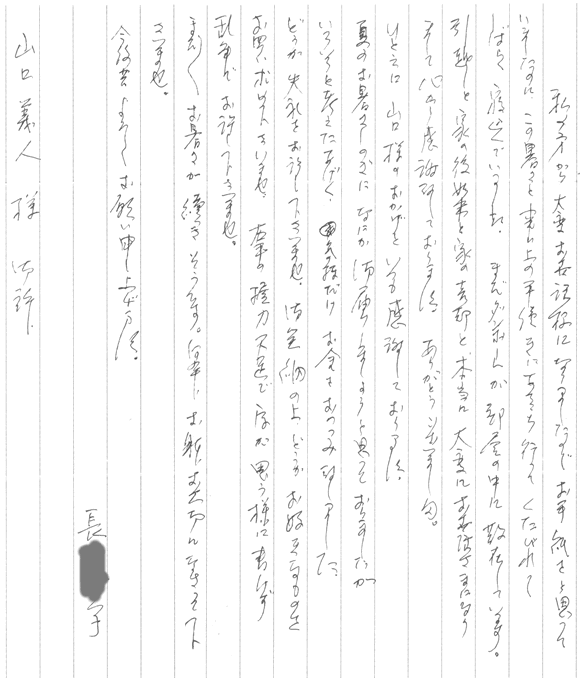 私の方から大変お世話になりましたので お手紙をと思って
いましたのに この暑さと事ム上の手続きにあちこち行って くたびれて
しばらく寝込んでいました。まだダンボールが部屋の中に散在しています。
引越しと家の後始末と家の売却と本当に大変にお世話さまになり
まして 心から感謝致しております。ありがとうございます。
ひとえに 山口様のおかげと いつも感謝しております。
夏のお暑さの中に なにか お届けしましょうと思っておりましたが
いろいろと考えたあげく、お金をおつつみ致しました。
どうか失礼をお許し下さいませ。御笑納の上、どうか お好きなものを
お買い求め下さいませ。右手の握力不足で字が思う様に書けず
乱筆で お許し下さいませ。
まだまだ お暑さが続きそうです。何卒 お身お大切になさって下
さいませ。
今後共よろしくお願い申し上げます。
長 子
山口 義人 様 御許に